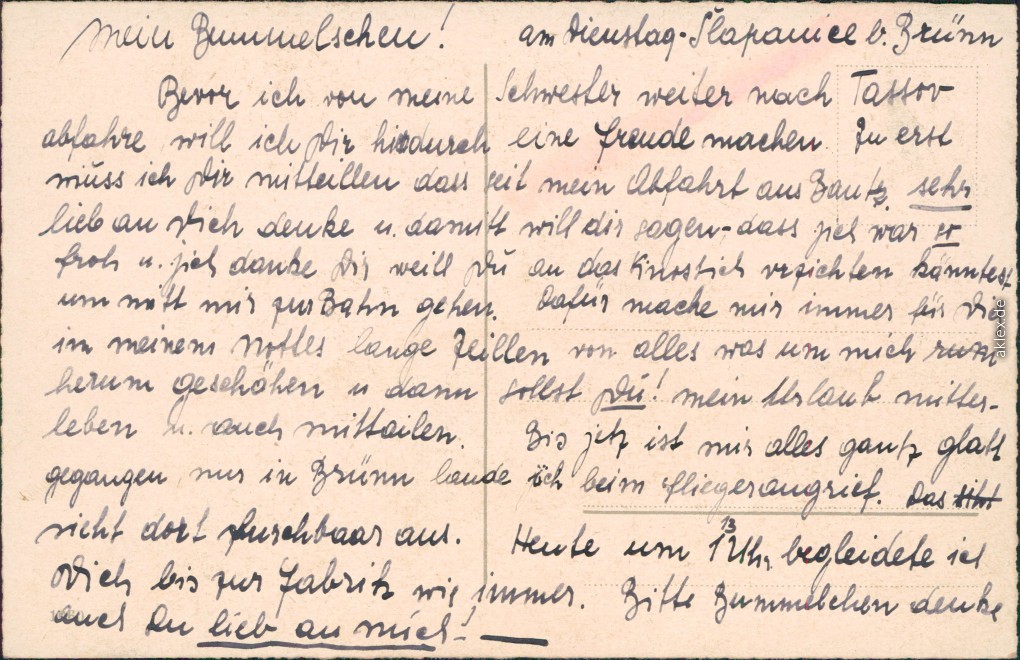 Mein Bummelschen! am Dienstag-Šlapanice b. Brünn
Bevor ich von meine Schwester weiter nach Tassov
abfahre will ich Dir hirdurch eine freude machen. Zu erst
muss ich Dir mitteillen dass seit mein Abfahrt aus Bautz. sehr
lieb an Dich denke u. damitt will dir sagen-dass jich war so
froh u. jich danke Dir weill Du an das Kinostich vrzichten känntest
um mitt mir zur Bahn gehen. Dafür mache mir immer für Dich
in meinem Nottes lange Zeillen von alles was um mich rum
herum geschöhen u dann sollst Du! mein Urlaub mitter-
leben u. auch mittailen. Bis jetz ist mir alles gantz glatt
gegangen, nur in Brünn lande ich beim fliegerangrief. Das siht
nicht dort furschbaar aus. Heute um 13 Uhr begleidete ich
Dich bis zur fabrik wie immer. Bitte Bummelchen denke
auch Du lieb an mich!
aklex.de